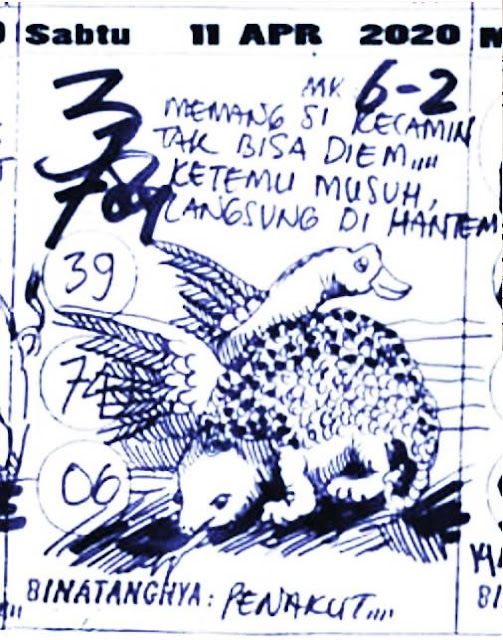 Sabtu 11 APR 2020
MK 6-2
3
MEMANG SI KECAMIN
TAK BISA DIEM....
3
KETEMU MUSUH,
LANGSUNG DI HANTEM
39
74
06
BINATANGNYA: PENAKUT....